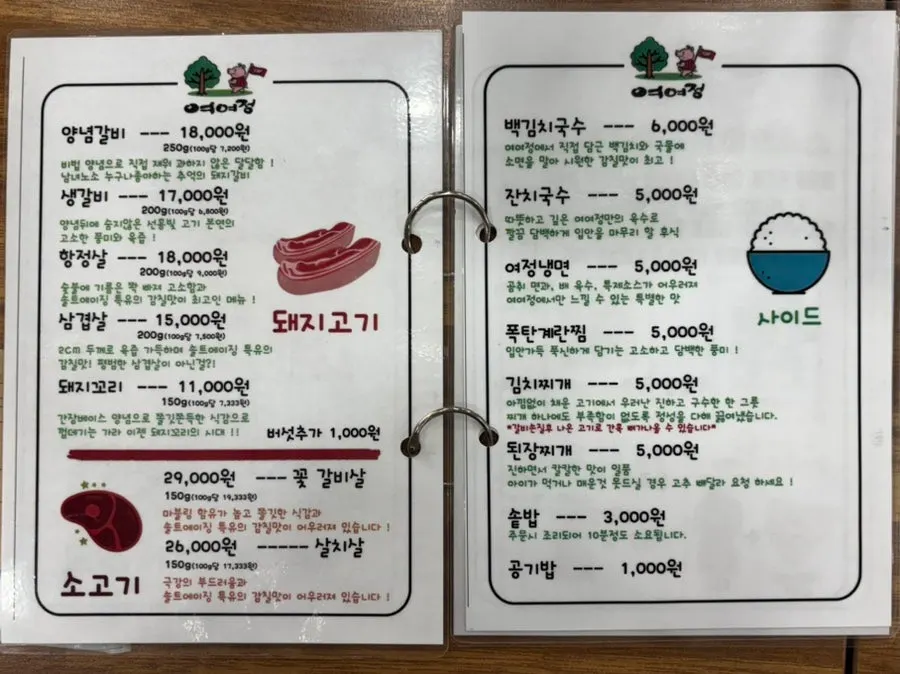 여여정
양념갈비 --- 18,000원
250g(100g당 7,200원)
비법 양념으로 직접 재워 과하지 않은 달달함 !
남녀노소 누구나좋아하는 추억의 돼지갈비
생갈비 --- 17,000원
200g(100g당 6,800원)
양념뒤에 숨지않은 선홍빛 고기 본연의
고소한 풍미와 육즙 !
항정살 --- 18,000원
200g(100g당 9,000원)
숯불에 기름은 쫙 빠져 고소함과
솔트에이징 특유의 감칠맛이 최고인 메뉴 !
삼겹살 --- 15,000원
200g(100g당 7,500원)
2CM 두께로 육즙 가득하며 솔트에이징 특유의
감칠맛! 평범한 삼겹살이 아닌걸?!
돼지꼬리 --- 11,000원
150g(100g당 7,333원)
간장베이스 양념으로 쫄깃쫀득한 식감으로
껍데기는 가라 이젠 돼지꼬리의 시대 !!
버섯추가 1,000원
돼지고기
29,000원 --- 꽃 갈비살
150g(100g당 19,333원)
마블링 함유가 높고 쫄깃한 식감과
솔트에이징 특유의 감칠맛이 어우러져 있습니다 !
26,000원 ------ 살치살
150g(100g당 17,333원)
극강의 부드러움과
솔트에이징 특유의 감칠맛이 어우러져 있습니다 !
소고기
여여정
백김치국수 --- 6,000원
여여정에서 직접 담근 백김치와 국물에
소면을 말아 시원한 감칠맛이 최고 !
잔치국수 --- 5,000원
따뜻하고 깊은 여여정만의 육수로
깔끔 담백하게 입안을 마무리 할 후식
여정냉면 --- 5,000원
곰취 면과, 배 육수, 특제소스가 어우러져
여여정에서만 느낄 수 있는 특별한 맛
폭탄계란찜 --- 5,000원
입안가득 푹신하게 담기는 고소하고 담백한 풍미 !
김치찌개 --- 5,000원
아낌없이 채운 고기에서 우러난 진하고 구수한 한 그릇
찌개 하나에도 부족함이 없도록 정성을 다해 끓여냈습니다.
*갈비손질후 나온 고기로 간혹 뼈가나올 수 있습니다*
된장찌개 --- 5,000원
진하면서 칼칼한 맛이 일품
아이가 먹거나 매운것 못드실 경우 고추 빼달라 요청 하세요 !
솥밥 --- 3,000원
주문시 조리되어 10분정도 소요됩니다.
공기밥 --- 1,000원
사이드